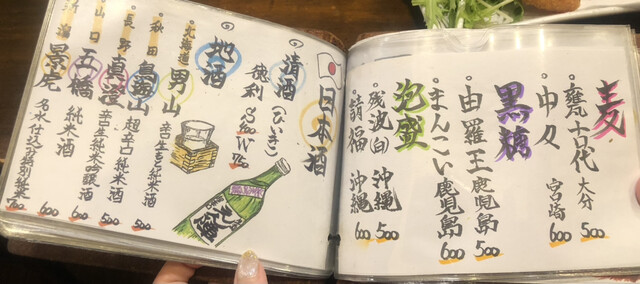 麦
・甕古代 大分 500
・中々 宮崎 600
黒糖
・由羅王 鹿児島 500
・まんこい 鹿児島 600
泡盛
・残波(白) 沖縄 500
・請福 沖縄 600
日本酒
◎清酒 (ひいき)
徳利 S400 W750
◎地酒
・北海道 男山 辛生もと純米酒
・秋田 鳥海山
超辛口純米酒 500
・長野 真澄 辛口生純米吟醸酒
山口 五橋 純米酒 600
景虎 名水仕込特別純米